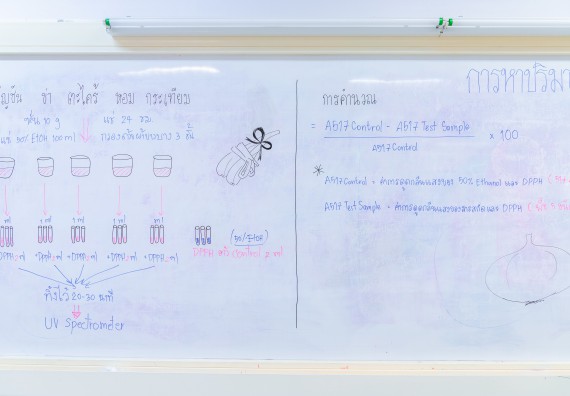 ัญชัน ข่า ตะไคร้ หอม กระเทียม
หั่น 10 g แช่ 24 ชม.
แช่ 50% EtOH 100 ml กรองด้วยผ้าขาวบาง 3 ชั้น
1 ml 1 ml 1 ml 1 ml 1 ml
+DPPH 2 ml +DPPH 2 ml +DPPH 2 ml +DPPH 2 ml +DPPH 2 ml
(50% EtOH)
DPPH control 2 ml
ทิ้งไว้ 20-30 นาที
UV Spectrometer
การหาปริมา
การคำนวณ
= A517 Control - A517 Test Sample × 100
A517 Control
* A517 Control = ค่าการดูดกลืนแสงของ 50% Ethanol ผสม DPPH
A517 Test Sample = ค่าการดูดกลืนแสงของสารสกัดผสม DPPH